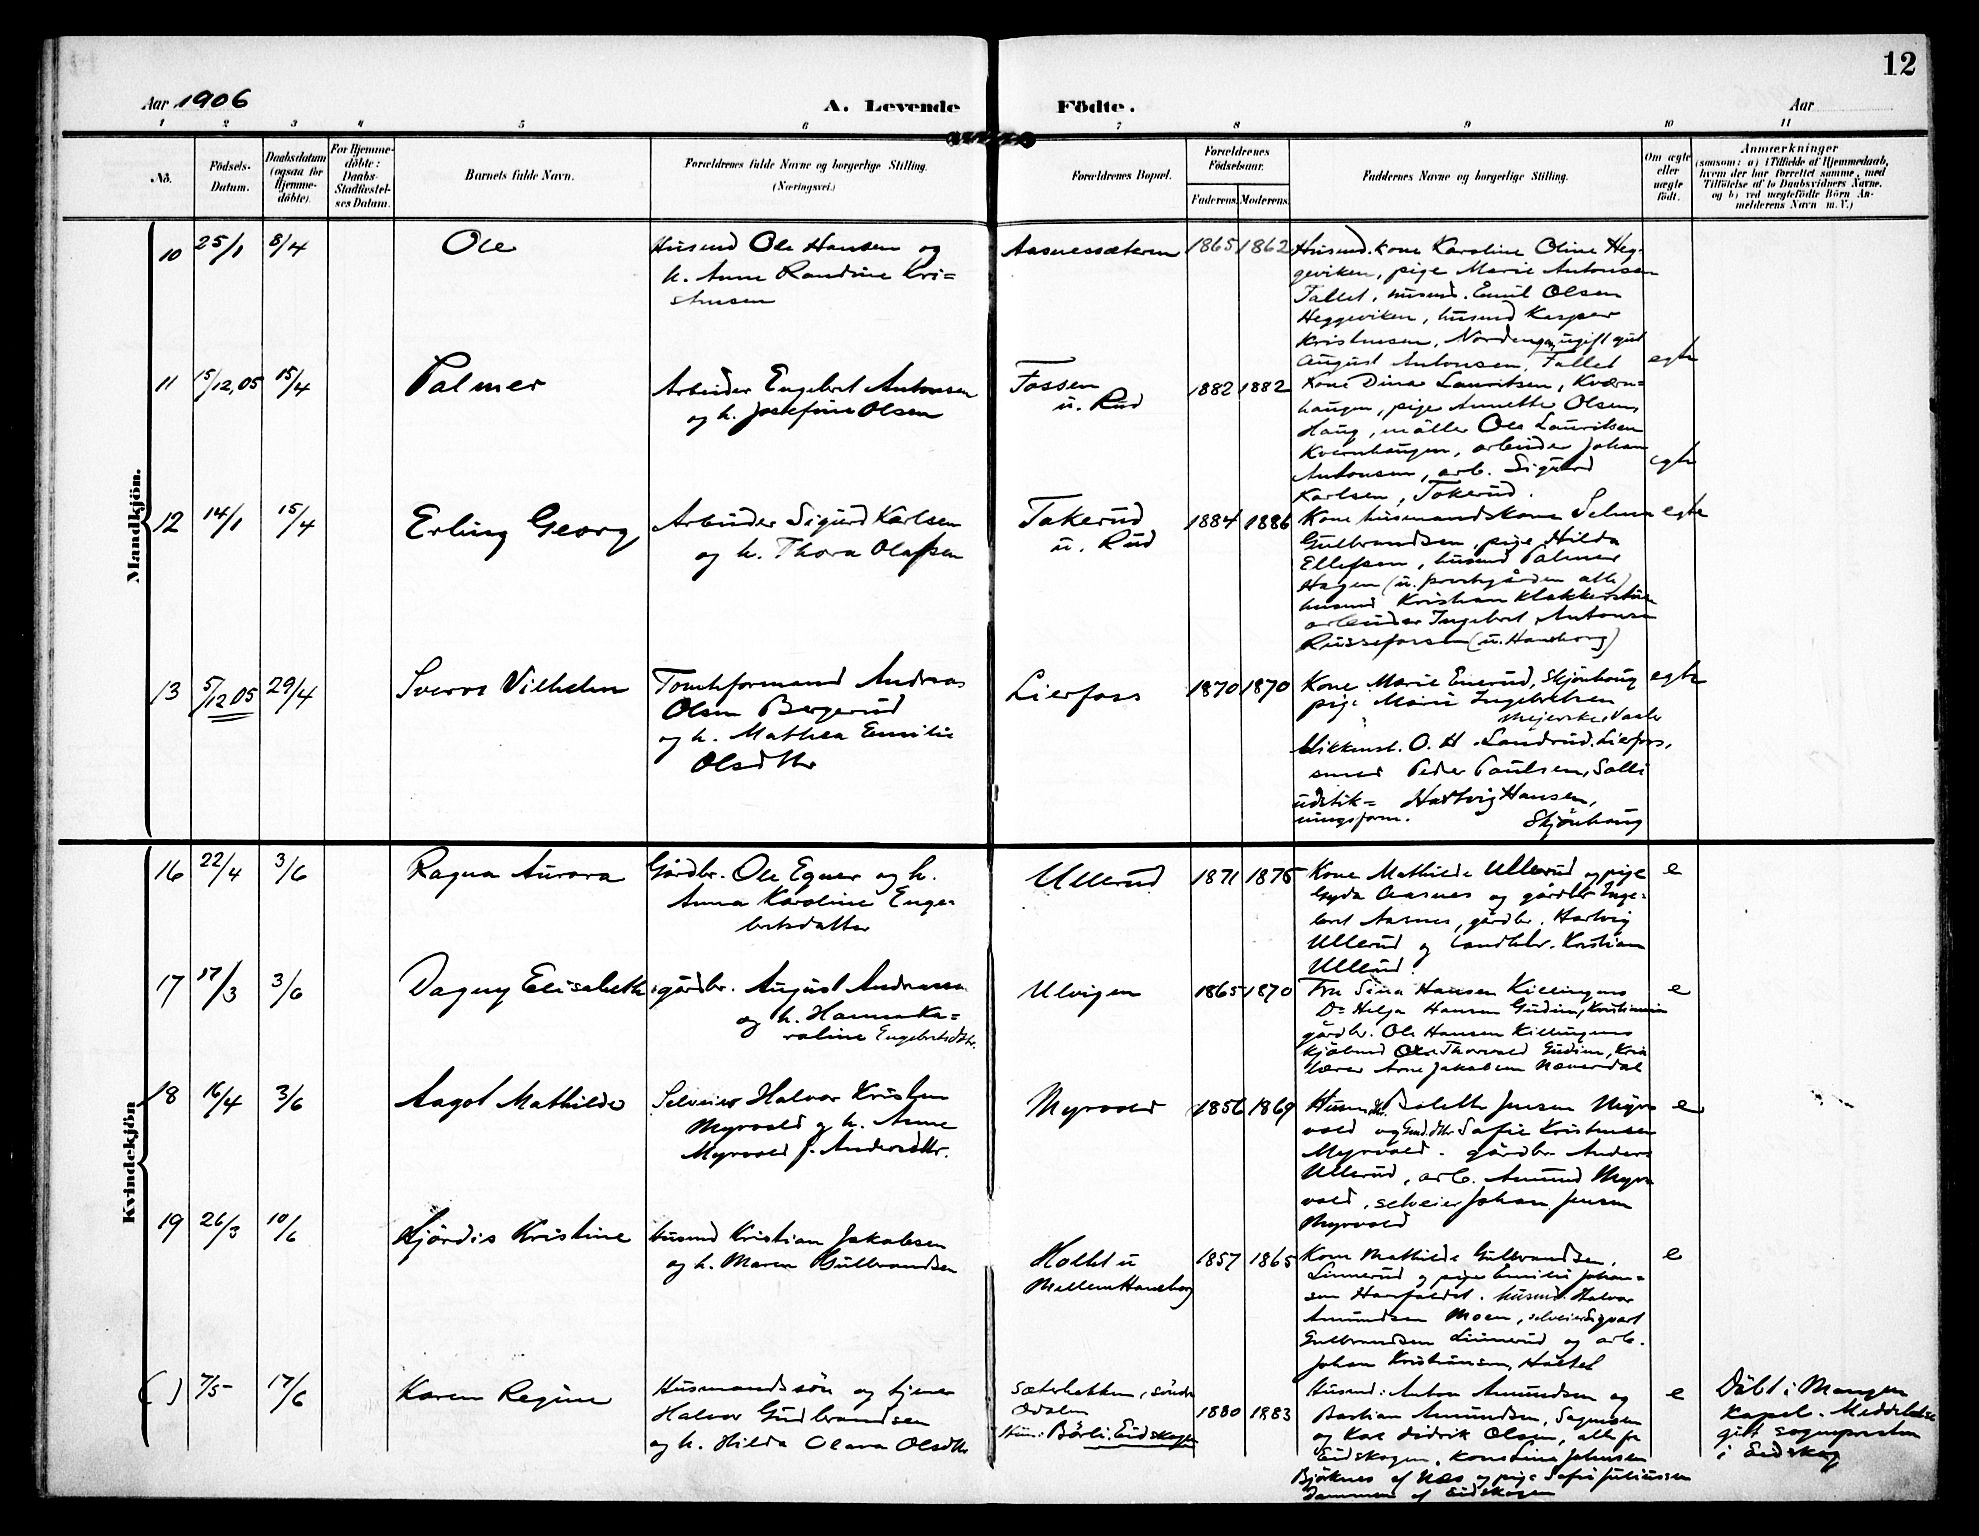 12
Aar 1906
A. Levende Födte.
Aar
1 2 3 4 5 6 7 8 9 10 11
No.
Födsels-Datum.
Daabsdatum (ogsaa for Hjemme-döbte).
For Hjemme-döbte: Daabs-Stadfæstel-ses Datum.
Barnets fulde Navn.
Forældrenes fulde Navne og borgerlige Stilling. (Næringsvei.)
Forældrenes Bopæl.
Forældrenes Födselsaar.
Faderens. Moderens.
Faddernes Navne og borgerlige Stilling.
Om ægte eller uægte født.
Anmærkninger
(saasom: a) i Tilfælde af Hjemmedaab,
hvem der har forrettet samme, med
Tilföielse af to Daabsvidners Navne,
og b) ved uægtefödte Börn An-
melderens Navn m. V.)
Mandkjön.
10 25/1 8/4 Ole
Husmd Ole Hansen og
h. Anne Randine Kri-
stensen
Aasnessæteren 1865 1862
Husmd. kone Karoline Oline Heg-
geviken, pige Marie Antonsen
Fallet, husmd. Emil Olsen
Heggeviken, husmd Kasper
Kristensen, Norden og ugift gut
August Antonsen, Fallet
egte
11 15/12,05 15/4 Palmer
Arbeider Engebret Antonsen
og h. Josefine Olsen
Fossen
u. Rud
1882 1882
Kone Dina Lauritsen, Kværn-
haugen, pige Annette Olsen,
Haug, møller Ole Lauritsen
Kvernhaugen, arbeider Johan
Antonsen, arb. Sigurd
Karlsen, Takerud.
egte
12 14/1 15/4 Erling Georg
Arbeider Sigurd Karlsen
og h. Thora Olafsen
Takerud
u. Rud
1884 1886
Kone husmandskone Selma
Gulbrandsen, pige Hilda
Ellefsen, husmd Palmer
Hagen (u. prestegården alle)
husmd Kristian
arbeider Ingebret Antonsen
Russefossen (u. Haneborg)
egte
13 5/12 05 29/4 Sverre Vilhelm
Tomteformand Andreas
Olsen Bergerud
og h. Mathea Emilie
Olsdtr
Lierfoss 1870 1870
Kone Marie Enerud, Skjönhaug
pige Marie Ingebretsen
meierske, Vaaler
O. H. Landrud, Lierfoss,
smed Peder Paulsen, Solli
udstik- Hartvig Hansen,
ningsform. Skjönhaug
egte
Kvindekjön
16 22/4 3/6 Ragna Aurora
Gårdbr. Ole Egner og h.
Anna Karoline Enge-
bretsdatter
Ullerud 1871 1875
Kone Mathilde Ullerud og pige
Gyda Aasnes og gårdbr Inge-
bret Aasnes, gårdbr. Hartvig
Ullerud og landhdr. Kristian
Ullerud.
e
17 17/3 3/6 Dagny Elisabeth
gårdbr. August Andreasen
og h. Hanna Ka-
roline Engebretsdtr.
Ulvigen 1865 1870
Fru Sina Hansen Killingmo
Do Helga Hansen Gudim, Kristiania
gårdbr. Ole Hansen Killingmo
kjöbmd Ole Thorvald Gudim, Kria
lærer Arne Jakobsen Næverdal
e
18 16/4 3/6 Aagot Mathilde
Selveier Halvor Kristen
Myrvold og h. Anne
Myrvold f. Andersdtr.
Myrvold 1856 1869
Bolette Jensen Myr-
vold og Gmd.dtr Sofie Kristensen
Myrvold. gårdbr. Anders
Ullerud, arb. Amund Myr-
vold, selveier Johan Jensen
Myrvold
e
19 26/3 10/6 Hjördis Kristine
Husmd Kristian Jakobsen
og h. Maren Gulbrandsen
Holtet u
Mellem Haneborg
1857 1865
Kone Mathilde Gulbrandsen,
Linnerud og pige Emilie Johan-
sen Harfaldet. husmd. Halvor
Amundsen Moen, selveier Sigvart
Gulbrandsen Linnerud og arb.
Johan Kristiansen, Holtet
e
( ) 7/5 17/6 Karen Regine
Husmandssön og tjener
Halvor Gudbrandsen
og h. Hilda Olava Olsdtr
Sæterbakken, söndre
Odalen
Börli, Eidskogen
1880 1883
Husmd: Anton Amundsen og
Bastian Amundsen, Sagmoen
og Karl Didrik Olsen, alle fra
Eidskogen, kone Lina Johansen
Björknes af Næs og pige Sofie Juliussen
Dammen af Eidskogen
e
Döbt i Mangen
kapel. Meddelelse
git sognepresten
i Eidskog